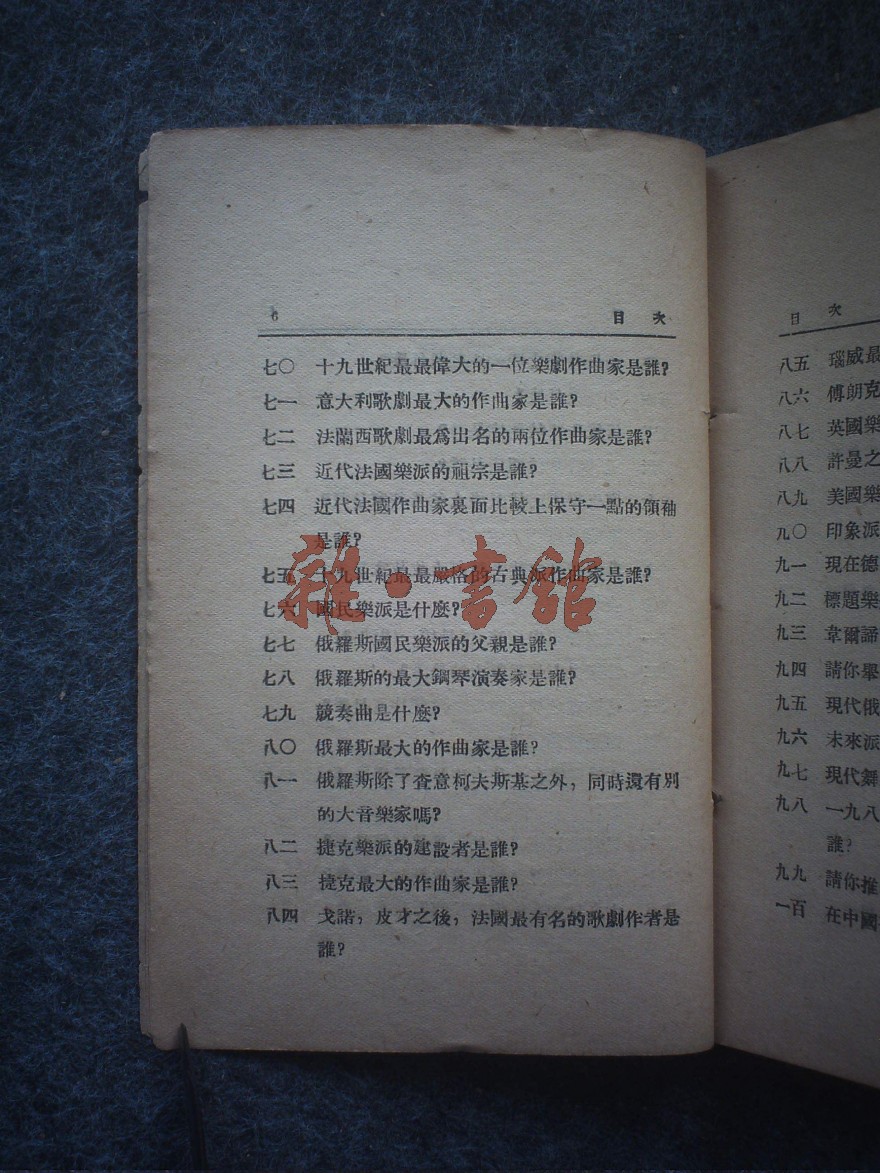 6 目次
七〇 十九世紀最最偉大的一位樂劇作曲家是誰?
七一 意大利歌劇最大的作曲家是誰?
七二 法蘭西歌劇最爲出名的兩位作曲家是誰?
七三 近代法國樂派的祖宗是誰?
七四 近代法國作曲家裏面比較上保守一點的領袖
是誰?
七五 十九世紀最最嚴格的古典派作曲家是誰?
七六 國民樂派是什麼?
七七 俄羅斯國民樂派的父親是誰?
七八 俄羅斯的最大鋼琴演奏家是誰?
七九 競奏曲是什麼?
八〇 俄羅斯最大的作曲家是誰?
八一 俄羅斯除了查意柯夫斯基之外,同時還有別
的大音樂家嗎?
八二 捷克樂派的建設者是誰?
八三 捷克最大的作曲家是誰?
八四 戈諾,皮才之後,法國最有名的歌劇作者是
誰?
雜·書館
目次
八五 瑙威最
八六 傅朗克
八七 英國樂
八八 許曼之
八九 美國樂
九〇 印象派
九一 現在德
九二 標題樂
九三 韋爾諦
九四 請你舉
九五 現代俄
九六 未來派
九七 現代舞
九八 一九八
誰?
九九 請你推
一百 在中國